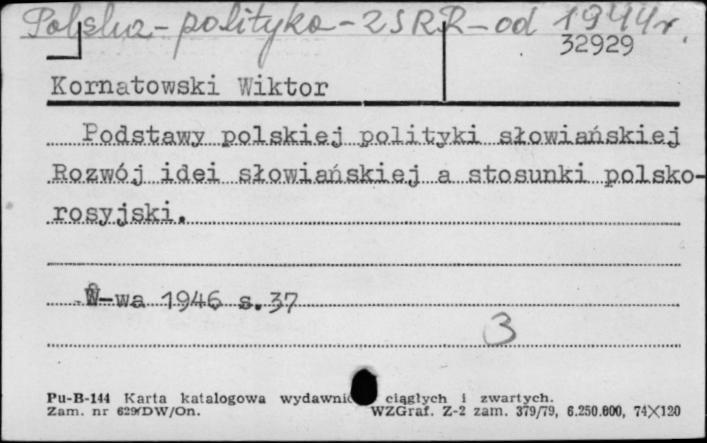 Polska - polityka - ZSRR - od 1944 r.
32929
Kornatowski Wiktor
Podstawy polskiej polityki słowiańskiej
Rozwój idei słowiańskiej a stosunki polsko-
rosyjski.
W-wa 1946 s.37
3
Pu-B-144 Karta katalogowa wydawnic ciągłych i zwartych.
Zam. nr 629/DW/On. WZGraf. Z-2 zam. 379/79, 6.250.000, 74×120